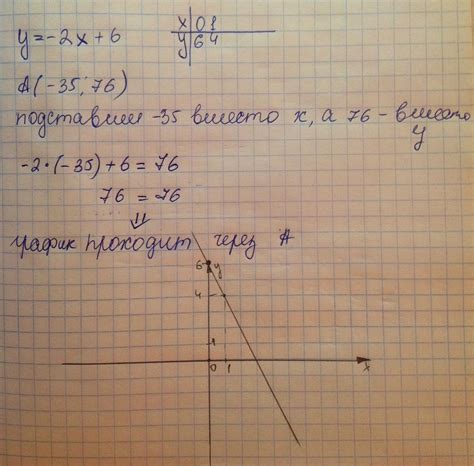 y=-2x+6
x 0 1
y 6 4
A(-35; 76)
подставим -35 вместо x, а 76 - вместо
y
-2·(-35)+6=76
76 = 76
⇓
график проходит через A
6 y
4
1
0 1 x